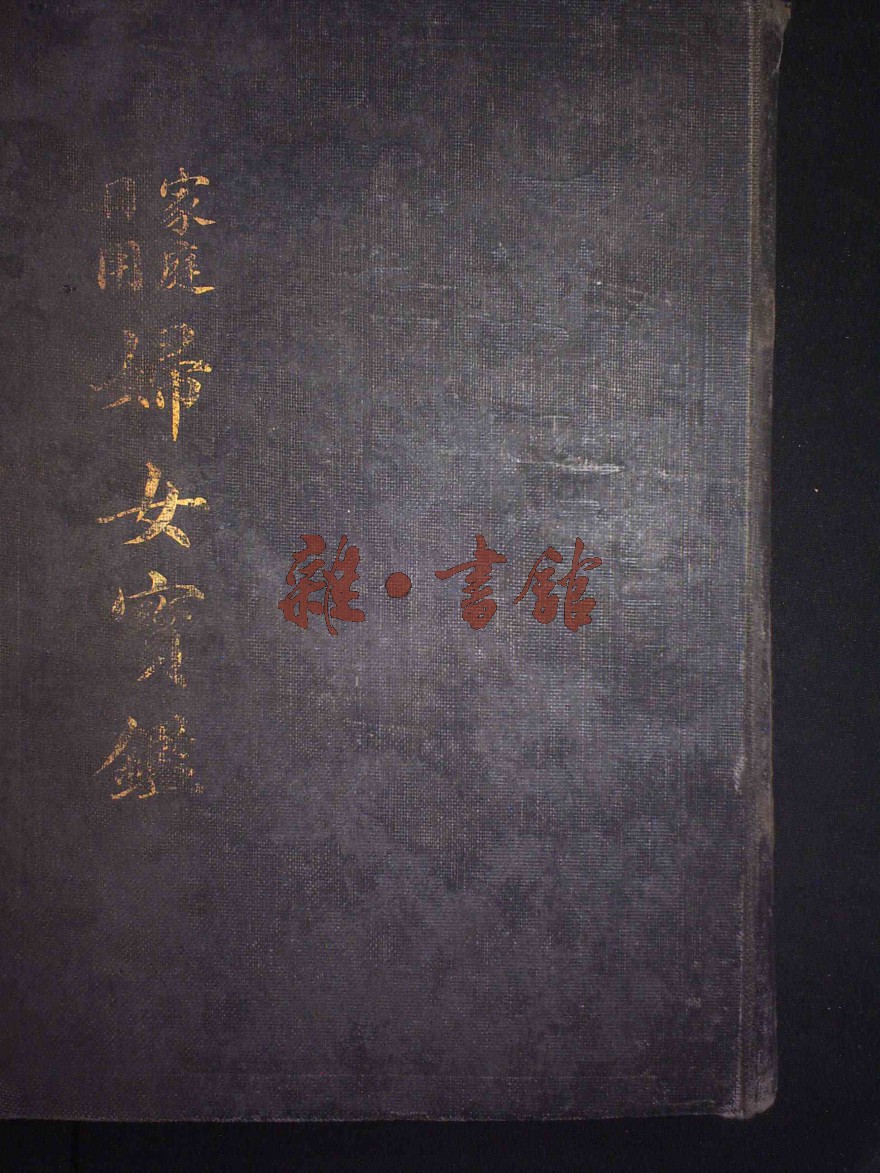 家庭
日用
婦女寶鑑
雜·書館